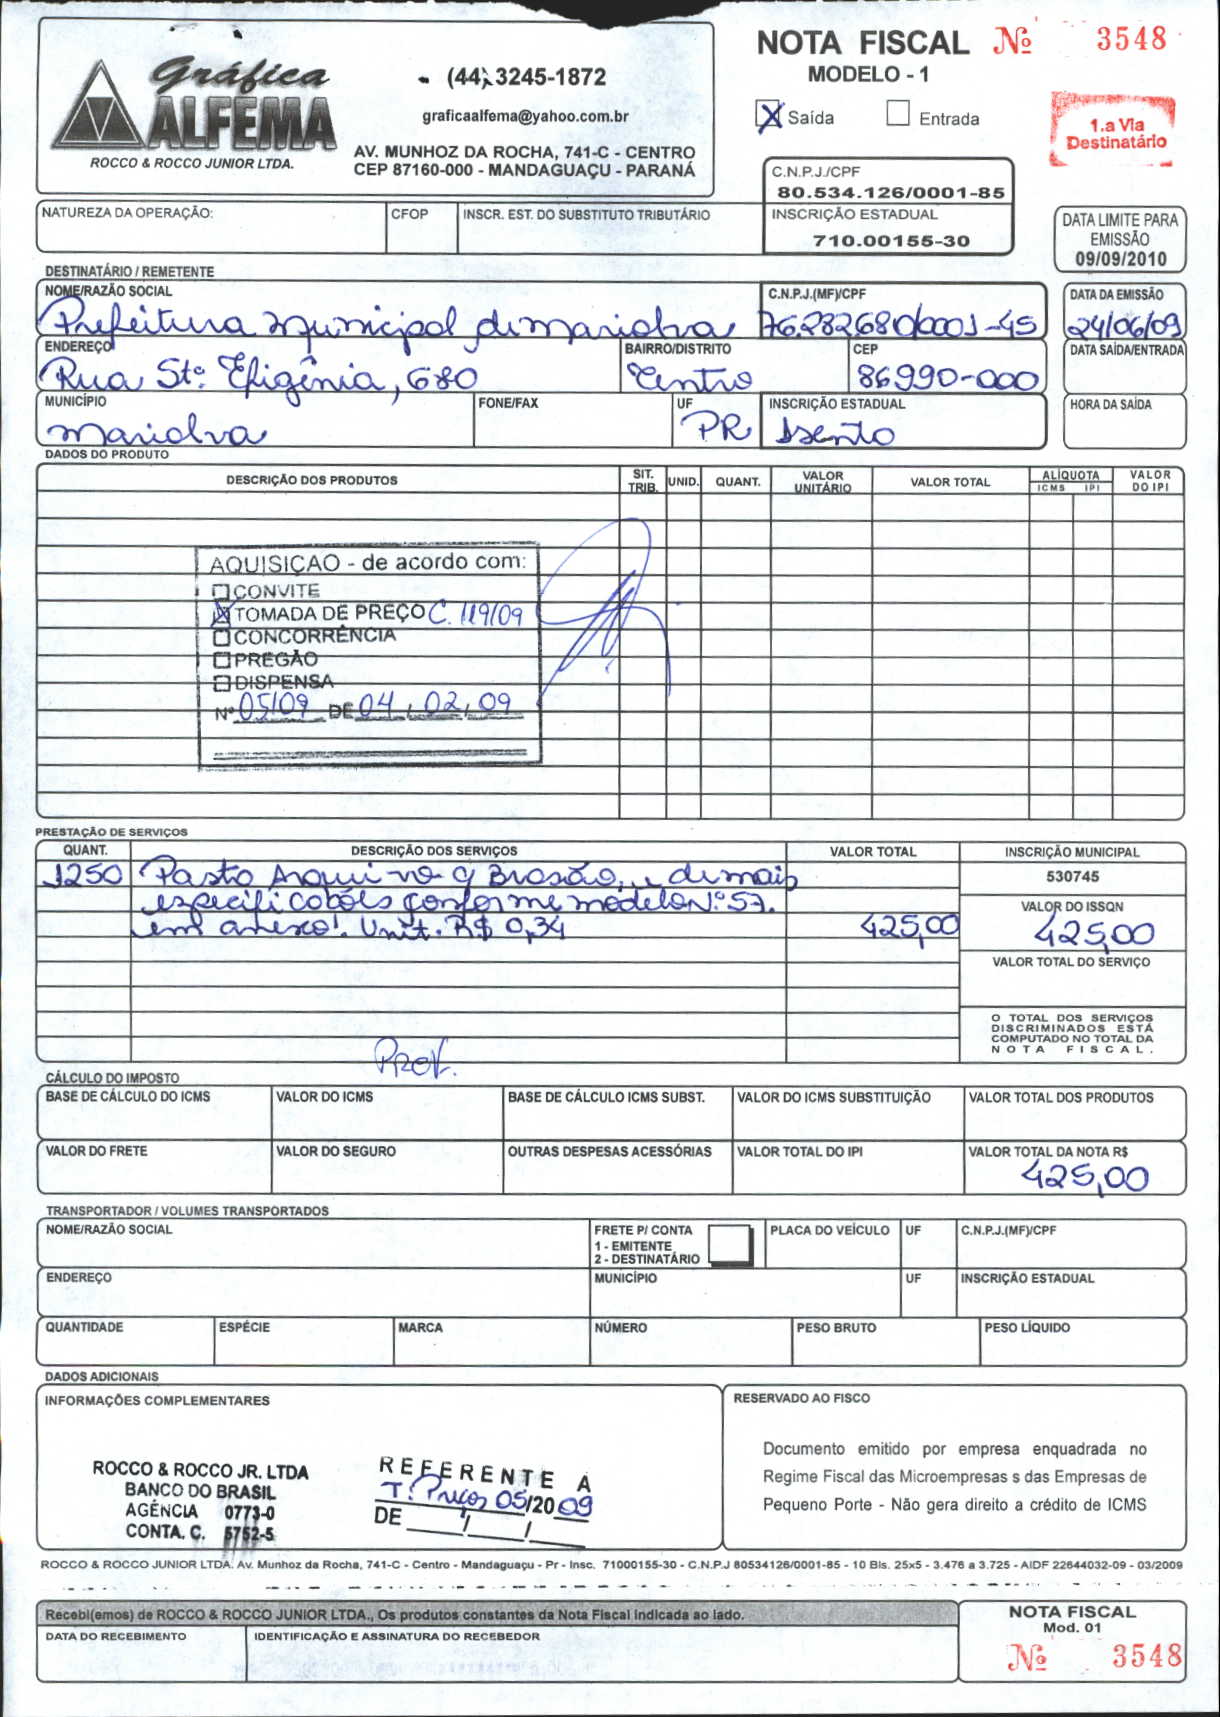 Gráfica
ALFEMA
ROCCO & ROCCO JUNIOR LTDA.
(44) 3245-1872
graficaalfema@yahoo.com.br
AV. MUNHOZ DA ROCHA, 741-C - CENTRO
CEP 87160-000 - MANDAGUAÇU - PARANÁ
NOTA FISCAL Nº 3548
MODELO - 1
X Saída Entrada
1.a Via
Destinatário
C.N.P.J./CPF
80.534.126/0001-85
NATUREZA DA OPERAÇÃO: CFOP INSCR. EST. DO SUBSTITUTO TRIBUTÁRIO INSCRIÇÃO ESTADUAL
710.00155-30
DATA LIMITE PARA
EMISSÃO
09/09/2010
DESTINATÁRIO / REMETENTE
NOME/RAZÃO SOCIAL C.N.P.J.(MF)/CPF DATA DA EMISSÃO
Prefeitura Municipal de Marialva 76.282680/0001-45 24/06/09
ENDEREÇO BAIRRO/DISTRITO CEP DATA SAÍDA/ENTRADA
Rua Stª Efigênia, 680 Centro 86990-000
MUNICÍPIO FONE/FAX UF INSCRIÇÃO ESTADUAL HORA DA SAÍDA
Marialva PR Isento
DADOS DO PRODUTO
DESCRIÇÃO DOS PRODUTOS SIT. TRIB. UNID. QUANT. VALOR UNITÁRIO VALOR TOTAL ALÍQUOTA ICMS IPI VALOR DO IPI
AQUISIÇÃO - de acordo com:
CONVITE
X TOMADA DE PREÇO C. 119/09
CONCORRÊNCIA
PREGÃO
DISPENSA
Nº 05/09 DE 04 / 02 / 09
PRESTAÇÃO DE SERVIÇOS
QUANT. DESCRIÇÃO DOS SERVIÇOS VALOR TOTAL INSCRIÇÃO MUNICIPAL
530745
1250 Pasta Arquivo c/ Brasão, e demais
especificações conforme modelo Nº 57.
em anexo. Unit. R$ 0,34 425,00
VALOR DO ISSQN
425,00
VALOR TOTAL DO SERVIÇO
O TOTAL DOS SERVIÇOS
DISCRIMINADOS ESTÁ
COMPUTADO NO TOTAL DA
NOTA FISCAL.
Prov.
CÁLCULO DO IMPOSTO
BASE DE CÁLCULO DO ICMS VALOR DO ICMS BASE DE CÁLCULO ICMS SUBST. VALOR DO ICMS SUBSTITUIÇÃO VALOR TOTAL DOS PRODUTOS
VALOR DO FRETE VALOR DO SEGURO OUTRAS DESPESAS ACESSÓRIAS VALOR TOTAL DO IPI VALOR TOTAL DA NOTA R$
425,00
TRANSPORTADOR / VOLUMES TRANSPORTADOS
NOME/RAZÃO SOCIAL FRETE P/ CONTA PLACA DO VEÍCULO UF C.N.P.J.(MF)/CPF
1 - EMITENTE
2 - DESTINATÁRIO
ENDEREÇO MUNICÍPIO UF INSCRIÇÃO ESTADUAL
QUANTIDADE ESPÉCIE MARCA NÚMERO PESO BRUTO PESO LÍQUIDO
DADOS ADICIONAIS
INFORMAÇÕES COMPLEMENTARES
ROCCO & ROCCO JR. LTDA
BANCO DO BRASIL
AGÊNCIA 0773-0
CONTA. C. 5752-5
REFERENTE A
T. Preços 05/2009
DE / /
RESERVADO AO FISCO
Documento emitido por empresa enquadrada no
Regime Fiscal das Microempresas s das Empresas de
Pequeno Porte - Não gera direito a crédito de ICMS
ROCCO & ROCCO JUNIOR LTDA. Av. Munhoz da Rocha, 741-C - Centro - Mandaguaçu - Pr - Insc. 71000155-30 - C.N.P.J 80534126/0001-85 - 10 Bls. 25x5 - 3.476 a 3.725 - AIDF 22644032-09 - 03/2009
Recebi(emos) de ROCCO & ROCCO JUNIOR LTDA., Os produtos constantes da Nota Fiscal indicada ao lado.
DATA DO RECEBIMENTO IDENTIFICAÇÃO E ASSINATURA DO RECEBEDOR
NOTA FISCAL
Mod. 01
Nº 3548